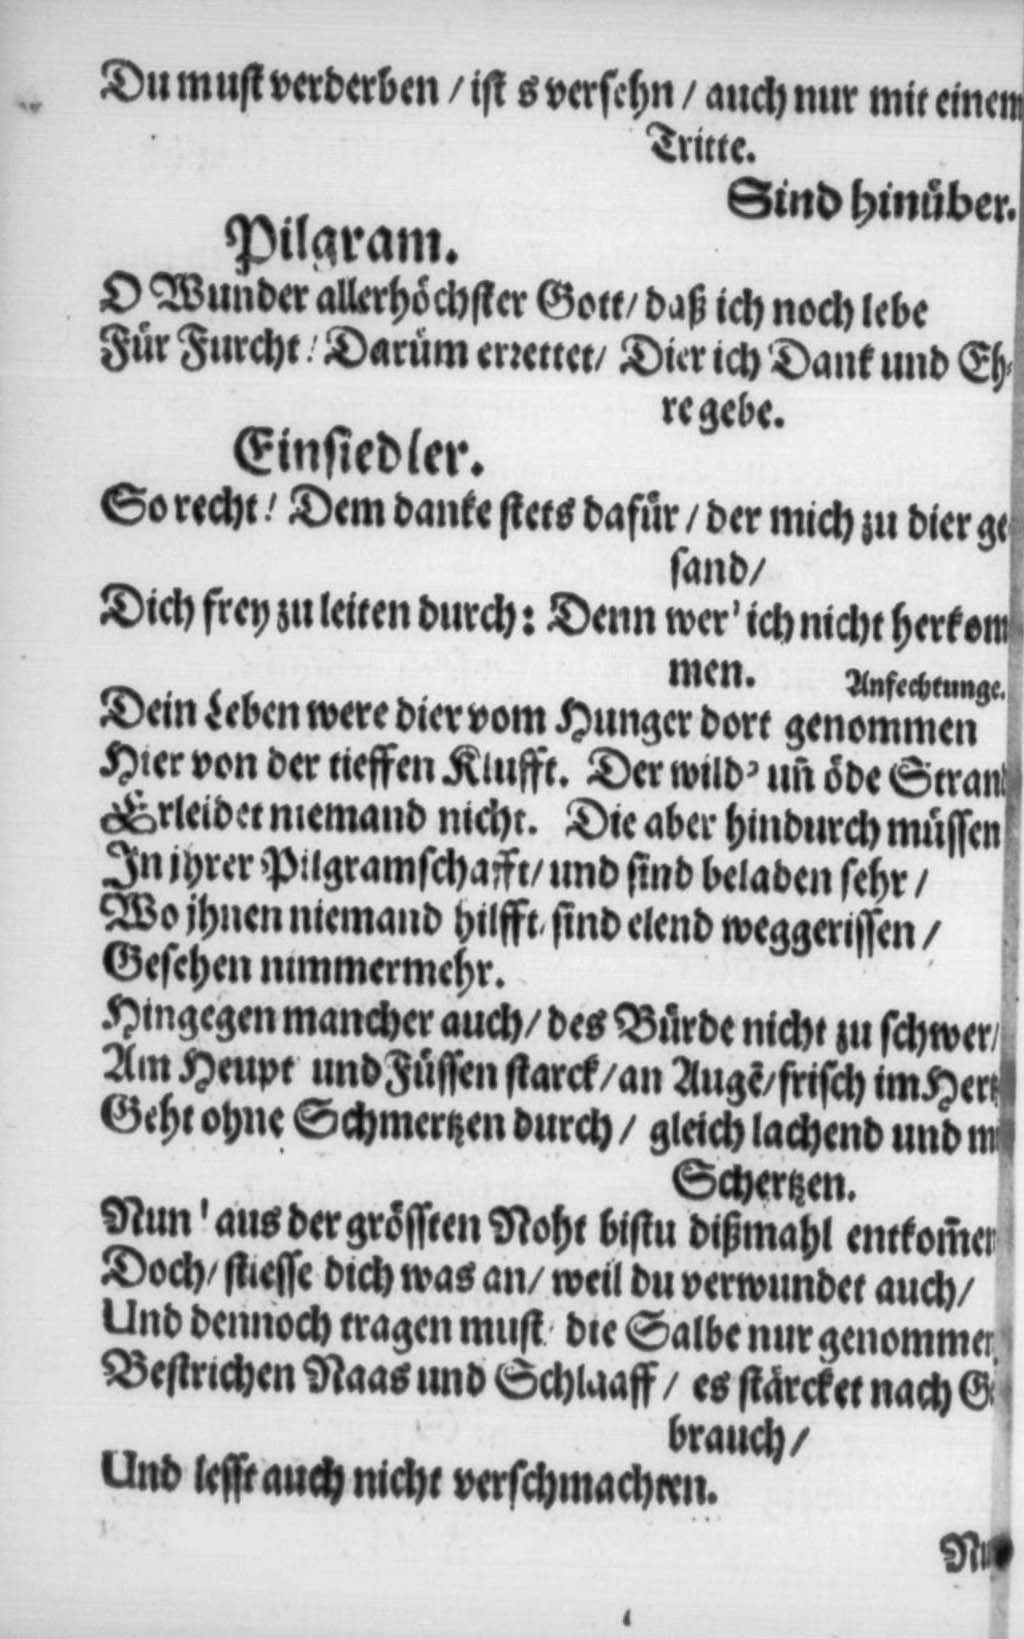 Du must verderben / ist s versehn / auch nur mit einem
Tritte.
Sind hinüber.
Pilgram.
O Wunder allerhöchster Gott / daß ich noch lebe
Für Furcht! Darüm errettet / Dier ich Dank und Eh-
re gebe.
Einsiedler.
So recht! Dem danke stets dafür / der mich zu dier ge
sand /
Dich frey zu leiten durch: Denn wer' ich nicht herkom
men.
Anfechtunge.
Dein Leben were dier vom Hunger dort genommen
Hier von der tieffen Klufft. Der wild' un̄ öde Stran
Erleidet niemand nicht. Die aber hindurch müssen
In jhrer Pilgramschafft / und sind beladen sehr /
Wo jhnen niemand hilfft / sind elend weggerissen /
Gesehen nimmermehr.
Hingegen mancher auch / des Bürde nicht zu schwer /
Am Heupt und Füssen starck / an Augē / frisch im Hertz
Geht ohne Schmertzen durch / gleich lachend und m
Schertzen.
Nun! aus der grössten Noht bistu dißmahl entkom̄en
Doch / stiesse dich was an / weil du verwundet auch /
Und dennoch tragen must / die Salbe nur genommen
Bestrichen Naas und Schlaaff / es stärcket nach Ge
brauch /
Und lesst auch nicht verschmachten.
Nu